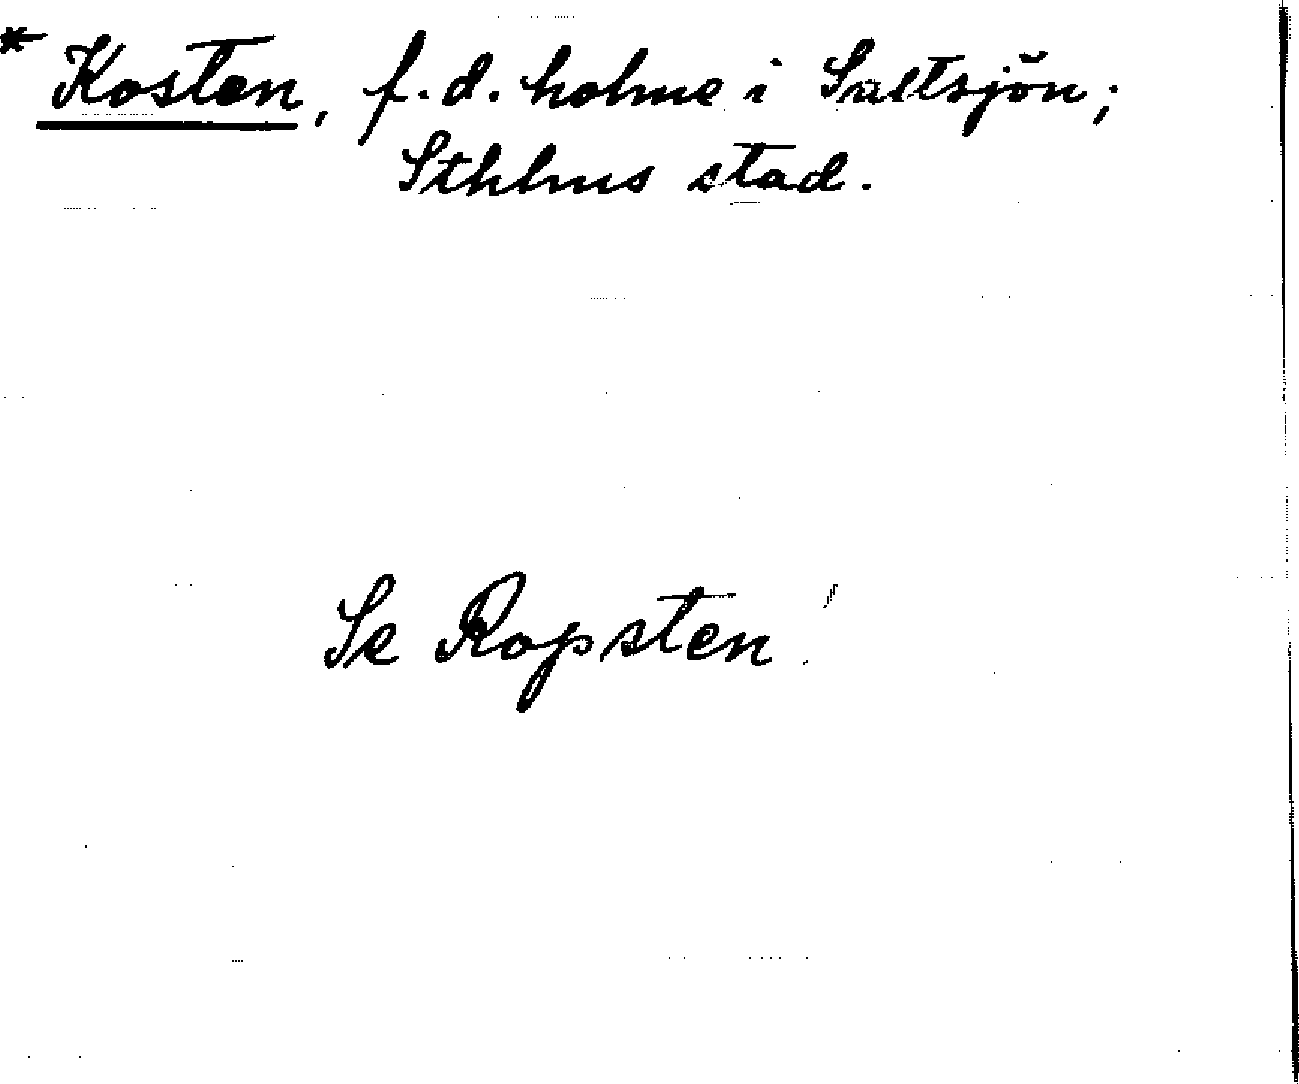 * Kosten, f.d. holme i Saltsjön;
Sthlms stad.
Se Ropsten!